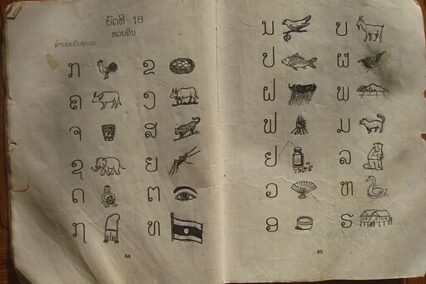 ບົດທີ 18
ທວນຄືນ
ກ ຂ
ຄ ງ
ຈ ສ
ຊ ຍ
ດ ຕ
ຖ ທ
44
ນ ບ
ປ ຜ
ຝ ພ
ຟ ມ
ຢ ລ
ວ ຫ
ອ ຮ
45